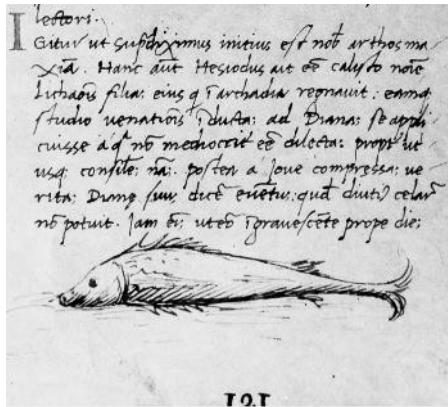 lectori.
Igitur ut supdiximus initius est nob arthos ma
xia. Hanc aut Hesiodus ait ee calysto noie
Lichaois filia: eius q i archadia regnauit: eamq
studio uenationis iducta: ad Diana: se appli
cuisse a q no mediocrit ee dilecta: propt ut
usq; consile: na: postea a Joue compressa: ue
rita: Diane suu dice euetu: qud diuti celari
no potuit. Jam ei: utero igrauescete prope die:
121